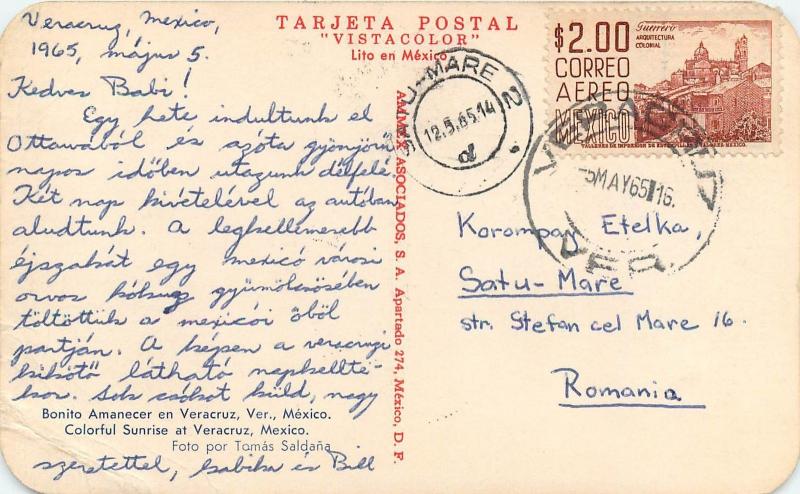 Veracruz, Mexico,
1965, május 5.
Kedves Babi!
Egy hete indultunk el
Ottawából és azóta gyönyörü
napos időben utazunk délfelé.
Két nap kivételével az autóban
aludtunk. A legkellemesebb
éjszakát egy mexicó városi
orvos kókusz gyümölcsösében
töltöttük a mexicói öböl
partján. A képen a veracruzi
kikötő látható napkelté-
kor. Sok csókot küld, nagy
Bonito Amanecer en Veracruz, Ver., México.
Colorful Sunrise at Veracruz, Mexico.
Foto por Tomás Saldaña
szeretettel, és Bill
TARJETA POSTAL
"VISTACOLOR"
Lito en México
AMMEX ASOCIADOS, S. A. Apartado 274, México, D. F.
SATU-MARE 2
12.5.65.14
d
$2.00
CORREO
AEREO
MEXICO
Guerrero
ARQUITECTURA
COLONIAL
TALLERES DE IMPRESION DE ESTAMPILLAS Y VALORES-MEXICO.
VERACRUZ
5MAY65 16.
VER.
Korompay Etelka,
Satu-Mare
str. Stefan cel Mare 16.
Romania